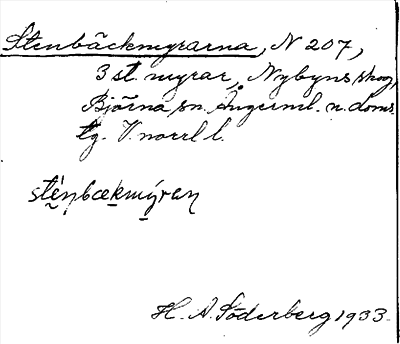 Stenbäckmyrarna, N 207,
3 st. myrar, Nybyns skog,
Björna sn. Ångerml. n. doms.
tg. V. norrl l.
sténbækmýran
H. A. Söderberg 1933.